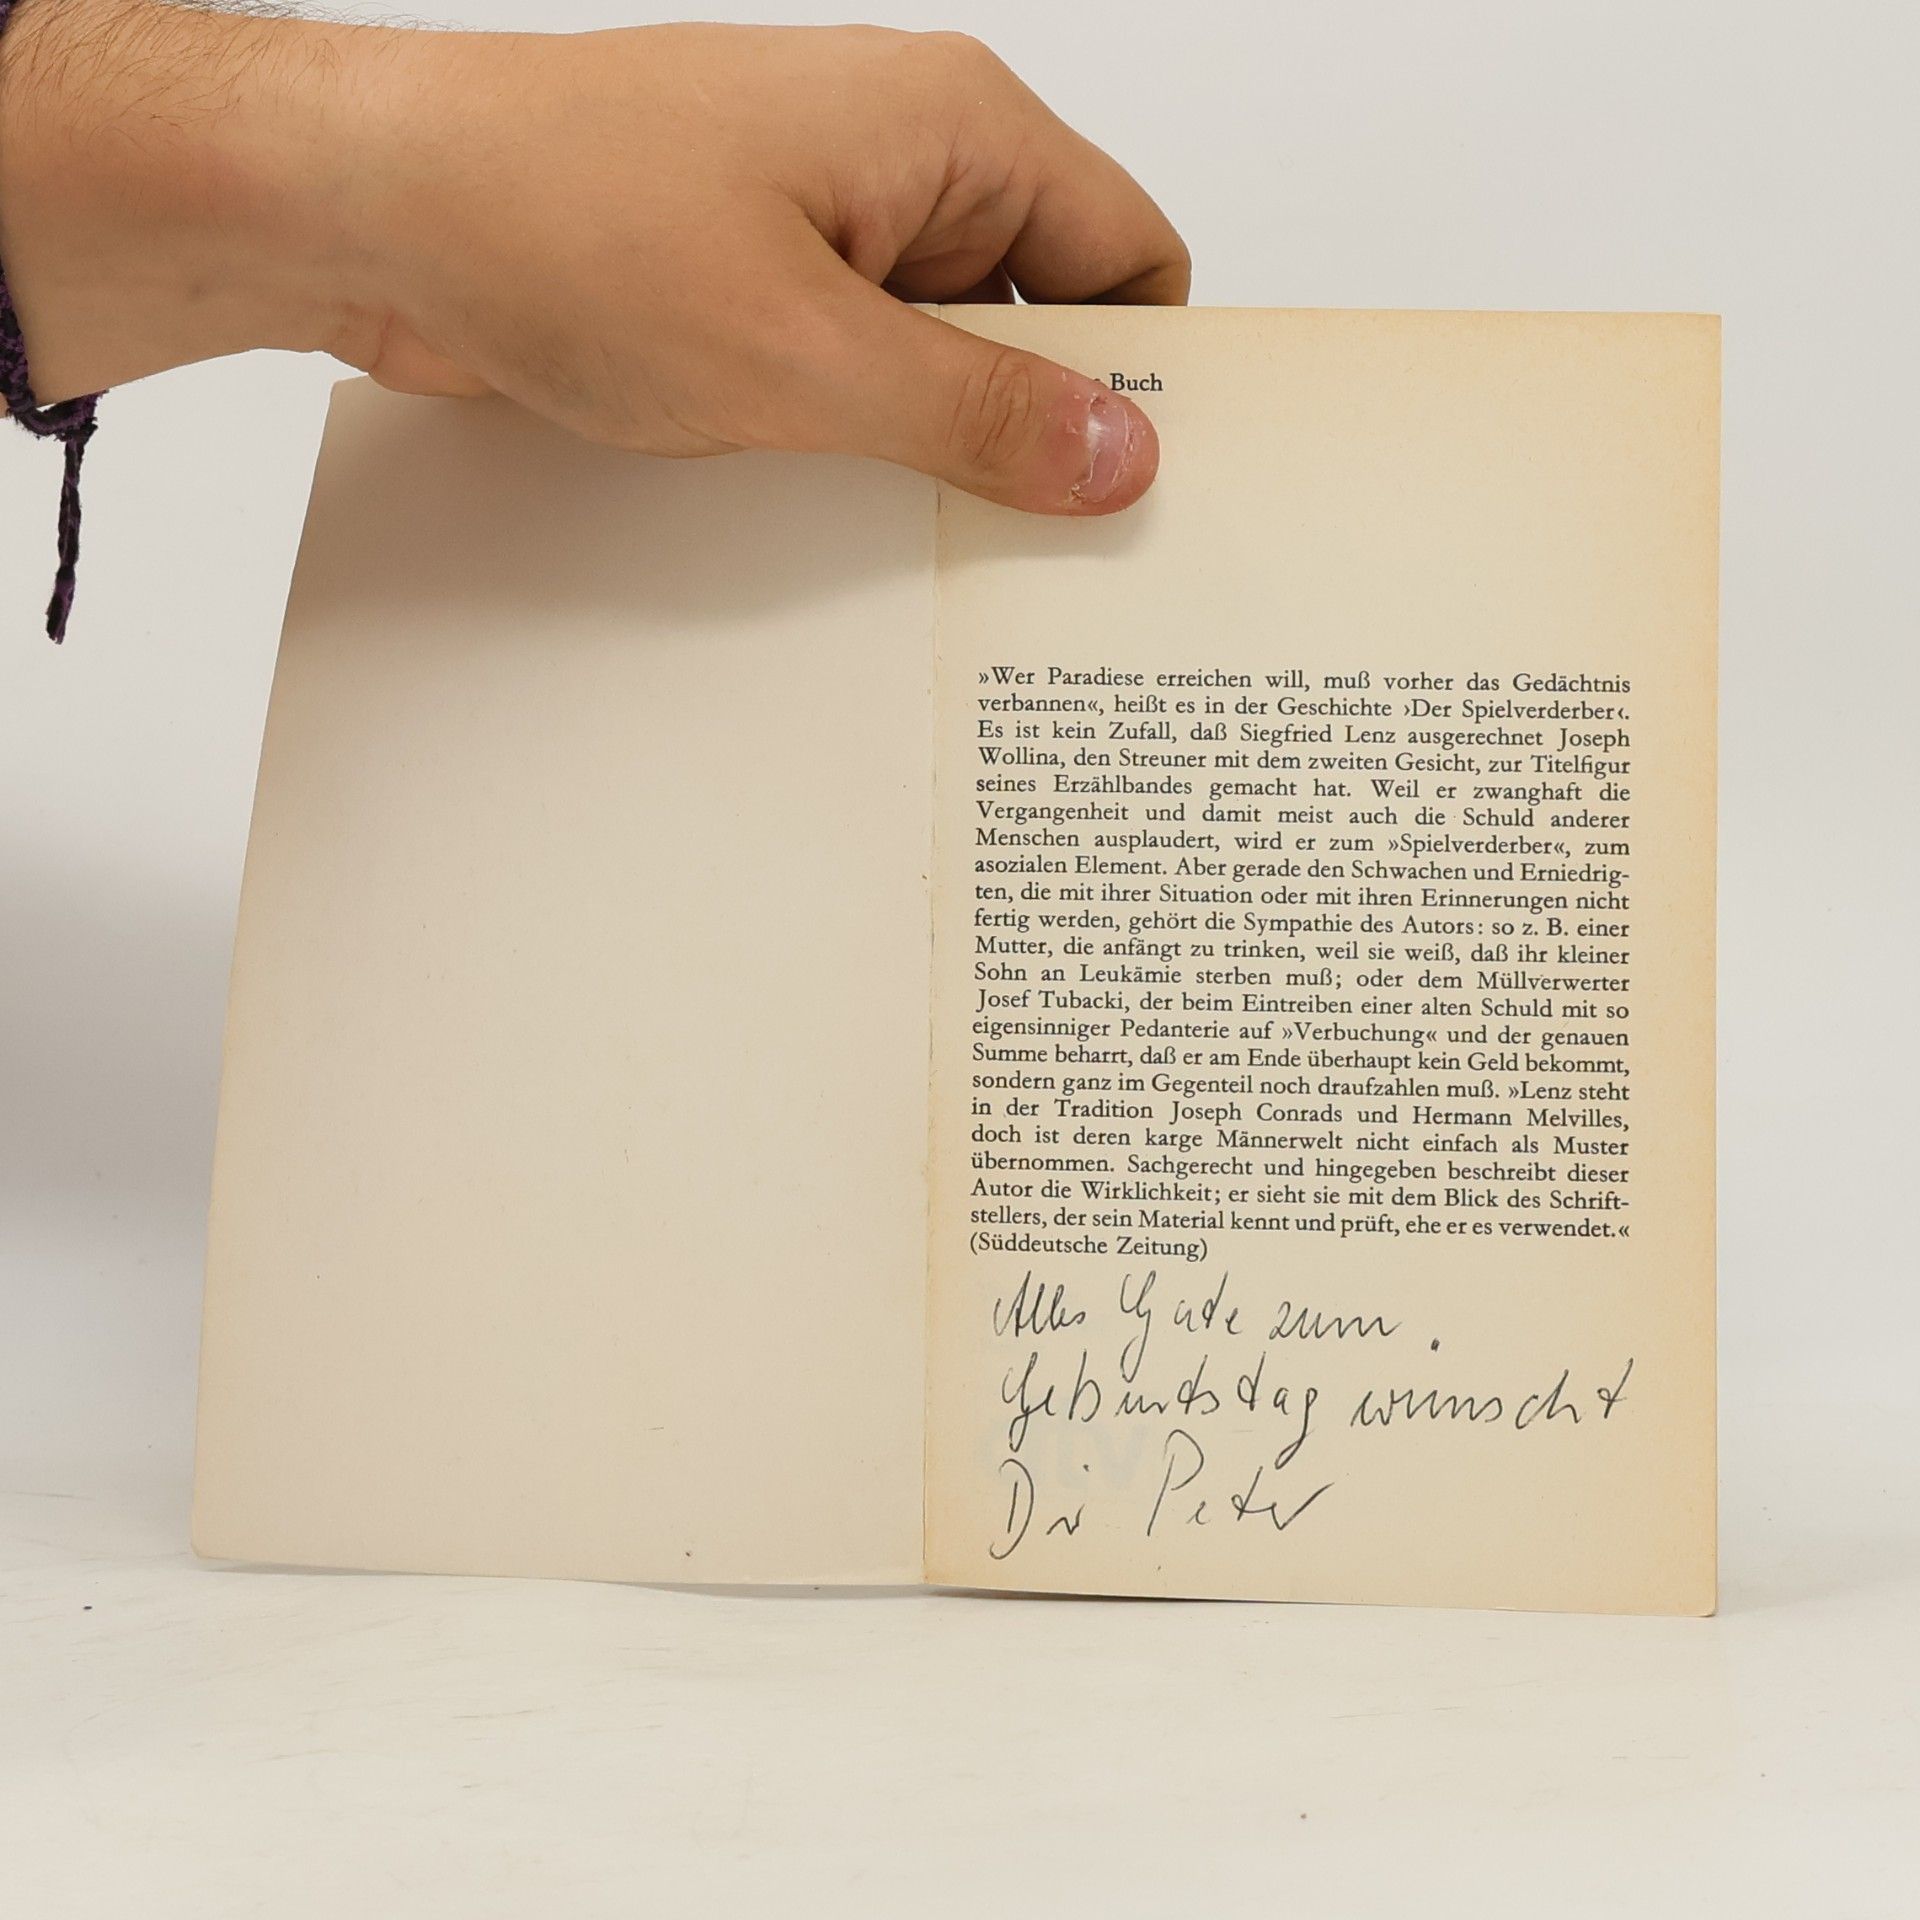 Buch
»Wer Paradiese erreichen will, muß vorher das Gedächtnis
verbannen«, heißt es in der Geschichte ›Der Spielverderber‹.
Es ist kein Zufall, daß Siegfried Lenz ausgerechnet Joseph
Wollina, den Streuner mit dem zweiten Gesicht, zur Titelfigur
seines Erzählbandes gemacht hat. Weil er zwanghaft die
Vergangenheit und damit meist auch die Schuld anderer
Menschen ausplaudert, wird er zum »Spielverderber«, zum
asozialen Element. Aber gerade den Schwachen und Erniedrig-
ten, die mit ihrer Situation oder mit ihren Erinnerungen nicht
fertig werden, gehört die Sympathie des Autors: so z. B. einer
Mutter, die anfängt zu trinken, weil sie weiß, daß ihr kleiner
Sohn an Leukämie sterben muß; oder dem Müllverwerter
Josef Tubacki, der beim Eintreiben einer alten Schuld mit so
eigensinniger Pedanterie auf »Verbuchung« und der genauen
Summe beharrt, daß er am Ende überhaupt kein Geld bekommt,
sondern ganz im Gegenteil noch draufzahlen muß. »Lenz steht
in der Tradition Joseph Conrads und Hermann Melvilles,
doch ist deren karge Männerwelt nicht einfach als Muster
übernommen. Sachgerecht und hingegeben beschreibt dieser
Autor die Wirklichkeit; er sieht sie mit dem Blick des Schrift-
stellers, der sein Material kennt und prüft, ehe er es verwendet.«
(Süddeutsche Zeitung)
Alles Gute zum
Geburtstag wünscht
Dir Peter